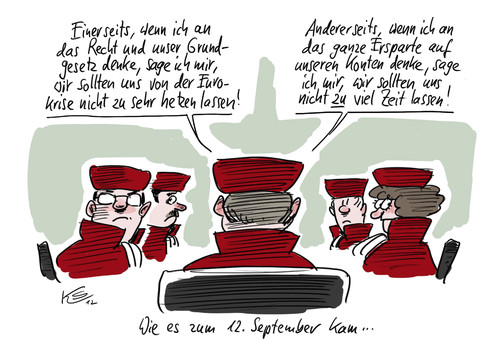 Einerseits, wenn ich an
das Recht und unser Grund-
gesetz denke, sage ich mir,
wir sollten uns von der Euro-
krise nicht zu sehr hetzen lassen!
Andererseits, wenn ich an
das ganze Ersparte auf
unseren Konten denke, sage
ich mir, wir sollten uns
nicht zu viel Zeit lassen!
KS 12
Wie es zum 12. September kam...